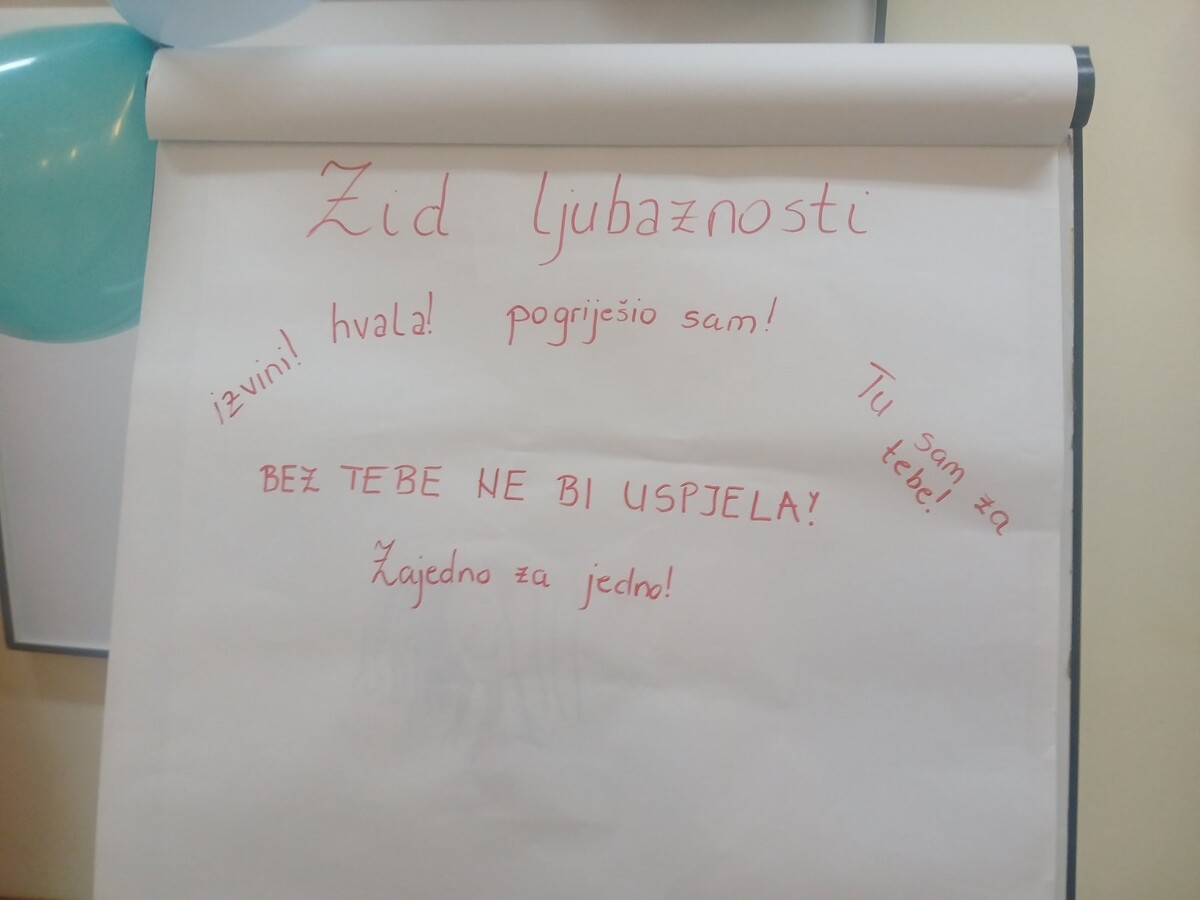 Zid ljubaznosti
izvini!
hvala!
pogriješio sam!
Tu sam za
tebe!
BEZ TEBE NE BI USPJELA!
Zajedno za jedno!